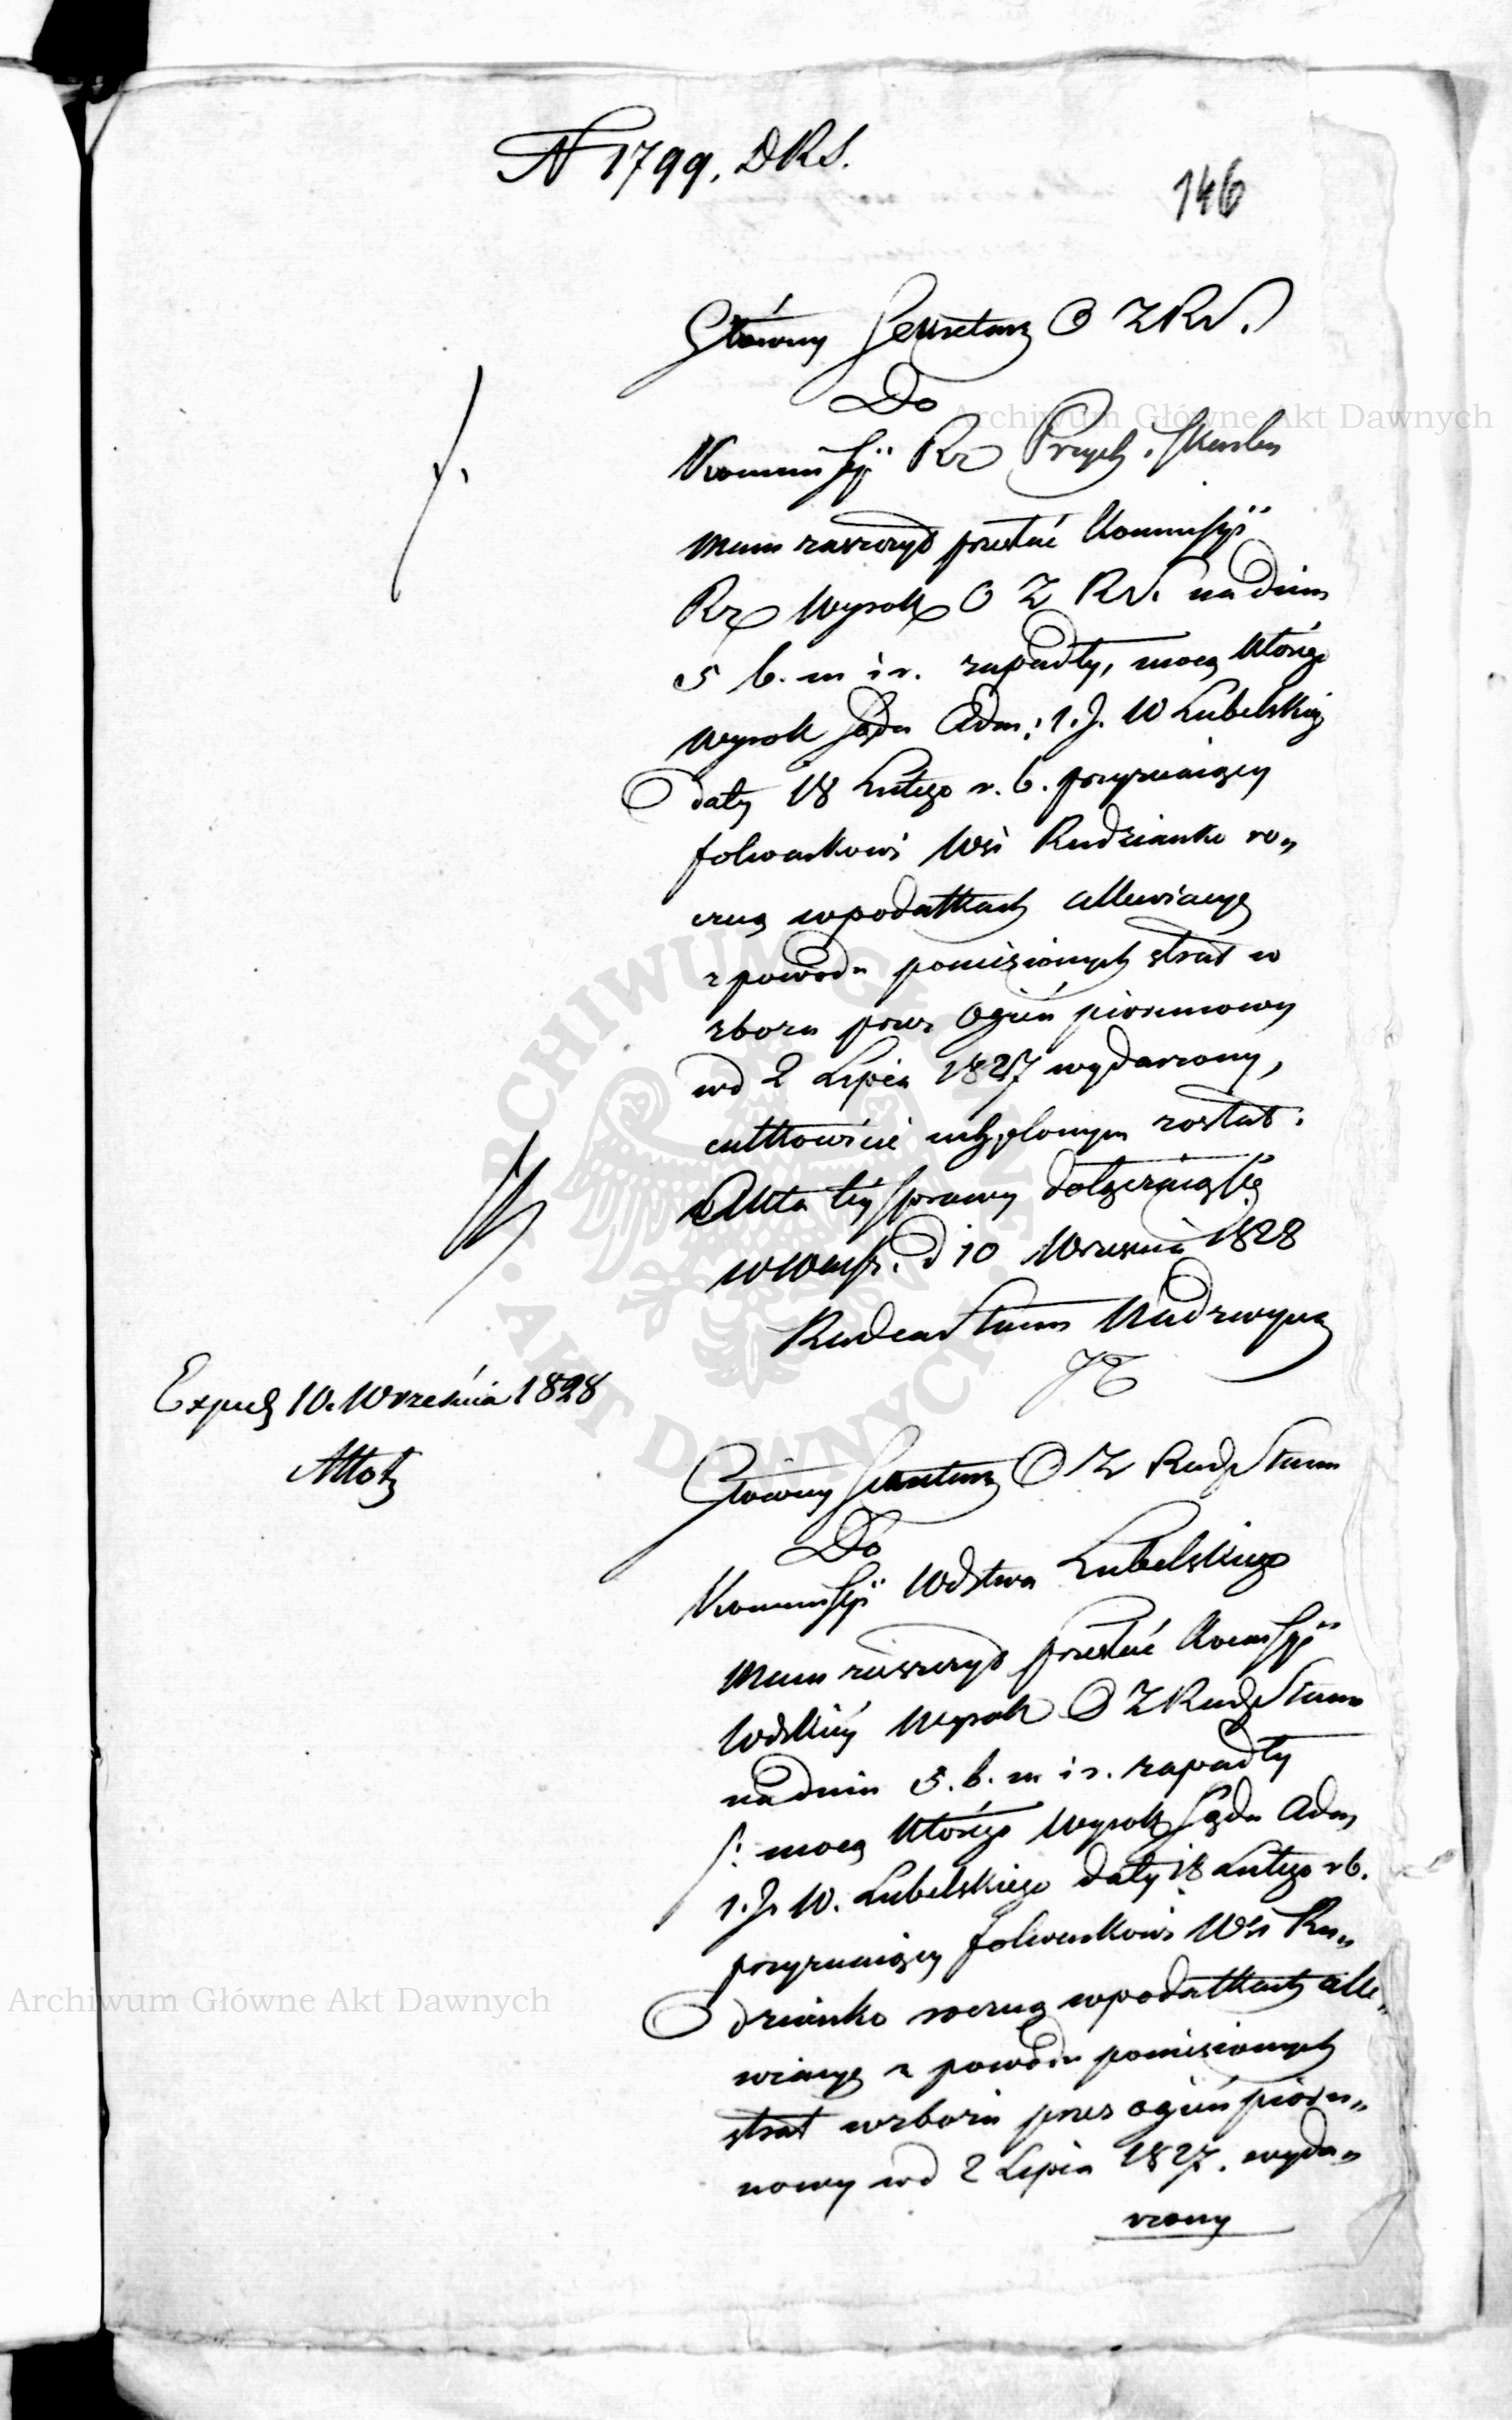 N 1799. DRS.
146
Główny Sekretarz O Z RS.
Do
Kommissyi Rz Przych. i Skarbu
Mam zaszczyt przesłać Kommissyi
Rz Wyrok O Z RS. na dniu
5 b. m i r. zapadły, mocą którego
wyrok Sądu Adm: 1. J. W Lubelskiej
daty 18 Lutego r. b. przyznaiący
folwarkowi Wsi Rudzianko ro„
czną w podatkach allewiacyę
z powodu poniesionych strat w
zbożu przez Ogień piorunowy
wd 2 Lipca 1827 wydarzony,
całkowicie uchylonym został.
Akta téy sprawy dołączaią się
w Warsz. d 10 Września 1828
Radca Stanu Nadzwycz
Exped 10. Września 1828
Główny Sekretarz O Z Rady Stanu
Do
Kommissyi Wdztwa Lubelskiego
Mam zaszczyt przesłać Kommssyi
Wdzkiéy Wyrok O Z Rady Stanu
na dniu 5. b. m i r. zapadły
/: mocą którego wyrok Sądu Adm
1. J. W. Lubelskiego daty 18 Lutego r b.
przyznaiący folwarkowi Wsi Ru„
dzianko roczną w podatkach alle„
wiacyę z powodu poniesionych
strat w zbożu przez ogień pioru„
nowy wd 2 Lipca 1827. wyda„
rzony
Archiwum Główne Akt Dawnych
Archiwum Główne Akt Dawnych
ARCHIWUM GŁÓWNE · AKT DAWNYCH ·